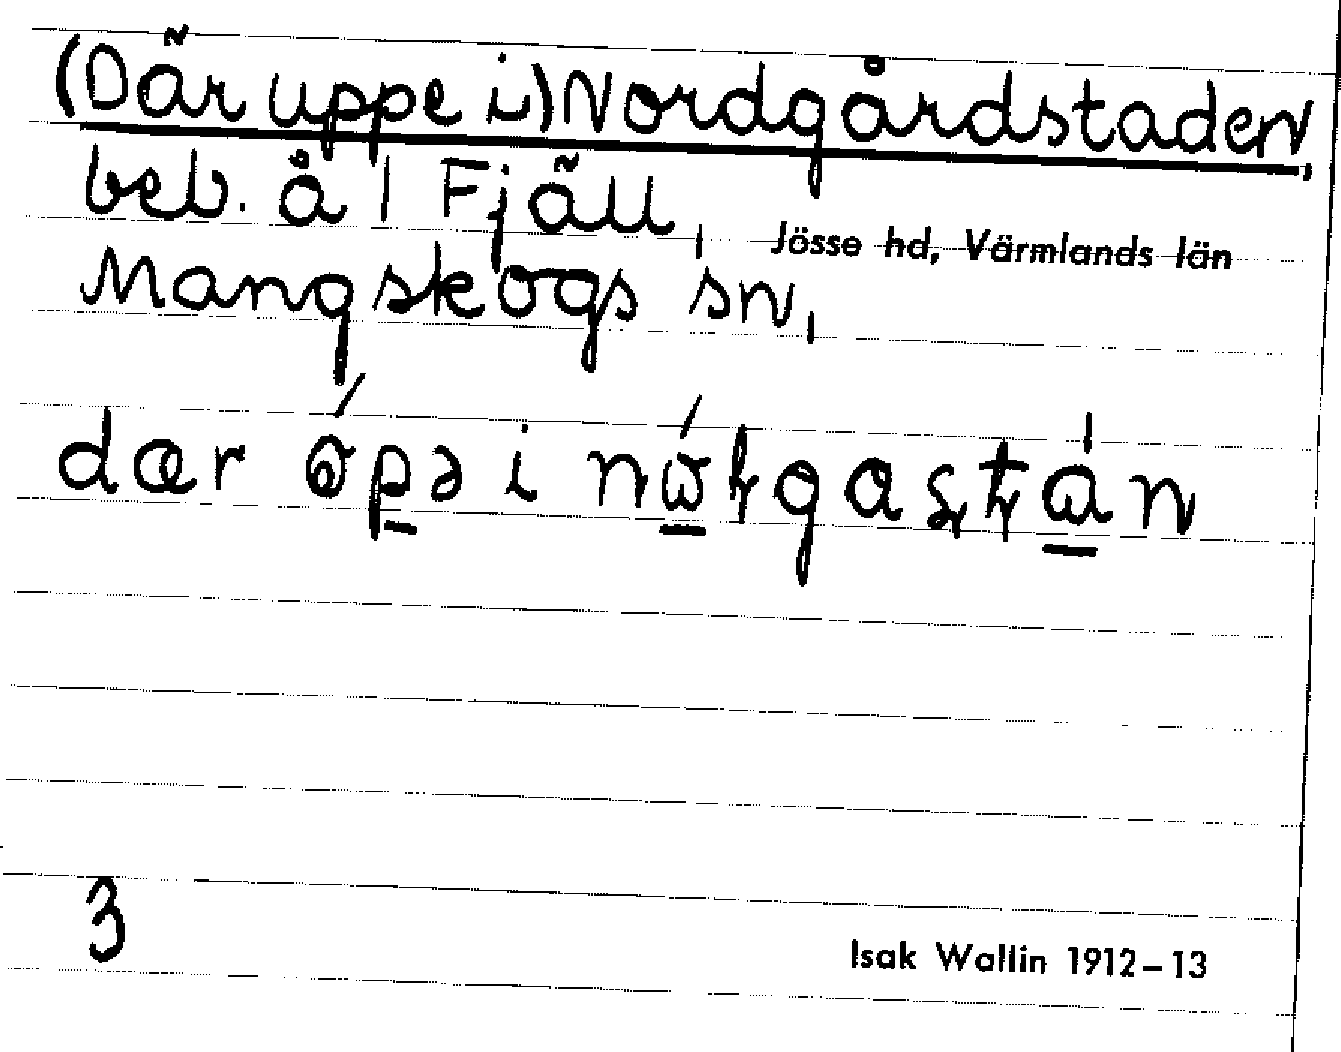 (Där uppe i) Nordgårdstaden,
beb. å 1 Fjäll,
Jösse hd, Värmlands län
Mangskogs sn,
dær
i
3
Isak Wallin 1912–13